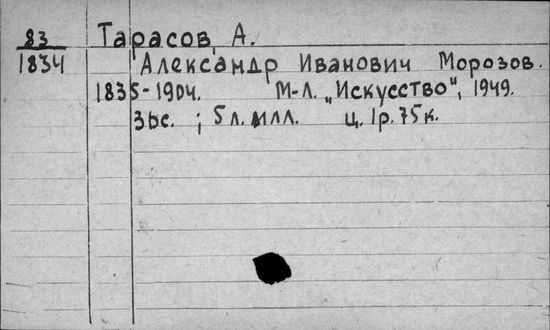 83 Тарасов, А.
1834 Александр Иванович Морозов.
1835-1904. М-Л. „Искусство", 1949.
36с. ; 5 л. илл. ц. 1р. 75к.